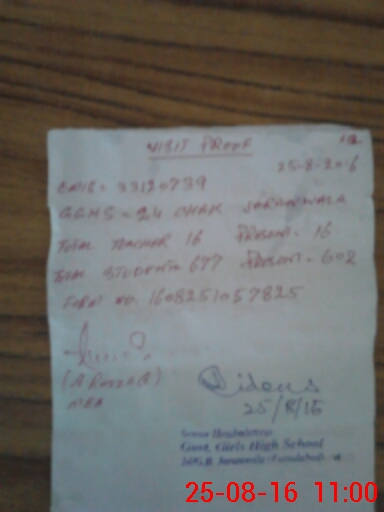 VISIT PROOF
25-8-2016
EMIS = 33120739
GGHS = 24 CHAK JARANWALA
TOTAL TEACHER 16 PRESENT = 16
TOTAL STUDENTS 677 PRESENT = 602
FORM NO. 1608251057825
(A RAZZAQ)
MEA
25/8/16
Senior Headmistress
Govt. Girls High School
24/G.B. Jaranwala (Faisalabad)
25-08-16 11:00